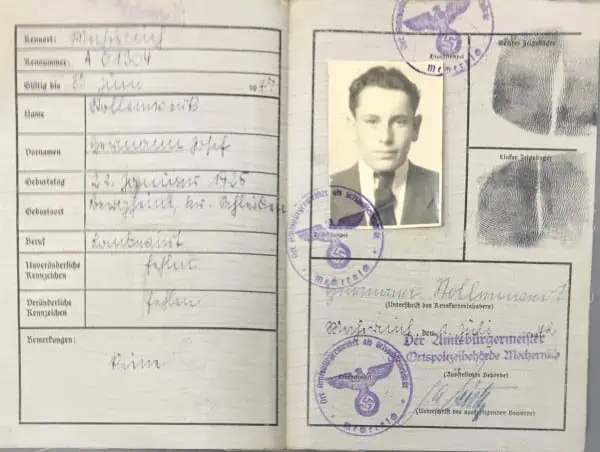 Kennort: Mechernich
Kennummer: A 01304
Gültig bis 30 Juni 1947
Name Stollenwerk
Vornamen Hermann Josef
Geburtstag 22. Januar 1925
Geburtsort Bergheim, Kr. Schleiden
Beruf Landwirt
Unveränderliche
Kennzeichen fehlen
Veränderliche
Kennzeichen fehlen
Bemerkungen:
Keine
Mechernich
Rechter Zeigefinger
Linker Zeigefinger
Dienststempel
Der Amtsbürgermeister als Ortspolizeibehörde
Mechernich
Hermann Stollenwerk
(Unterschrift des Kennkarteninhabers)
Mechernich, den Juli 42
Der Amtsbürgermeister
Ortspolizeibehörde Mechernich
(Ausstellende Behörde)
(Unterschrift des ausfertigenden Beamten)
Der Amtsbürgermeister als Ortspolizeibehörde
Mechernich